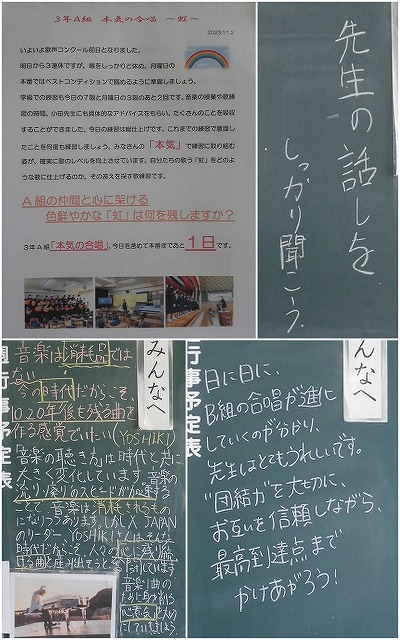 3年A組 本気の合唱 ～虹～
2023.11.2
いよいよ歌声コンクール前日となりました。
明日から3連休ですが、喉をしっかりと休め、月曜日の
本番ではベストコンディションで臨めるように準備しましょう。
学級での練習も今日の7限と月曜日の3限のあと2回です。音楽の授業や歌練
習の時間、小田先生にも具体的なアドバイスをもらい、たくさんのことを吸収
することができました。今日の練習は総仕上げです。これまでの練習で意識し
たことを何度も練習しましょう。みなさんの「本気」で練習に取り組む
姿が、確実に歌のレベルを向上させています。自分たちの歌う「虹」をどのよ
うな歌に仕上げるのか。その答えを探す歌練習です。
A組の仲間と心に架ける
色鮮やかな「虹」は何を残しますか？
3年A組「本気の合唱」、今日を含めて本番まであと1日です。
先生の話しを
しっかり聞こう。
みんなへ
行事予定表
音楽は消耗品では
ない
今の時代だからこそ、
10、20年後も残る曲を
作る感覚でいたい(YOSHIKI)
「音楽の聴き方」は時代と共に
大きく変化しています。音楽の
流行り廃りのスピードが加速する
ことで、音楽は消費されるもの
になりつつあります。しかしX JAPAN
のリーダー、YOSHIKIさんはそんな
時代だからこそ、人々の心に残り続
ける曲を
音楽1曲の
んなへ
行事予定表
日に日に、
B組の合唱が進化
していくのが分かり、
先生はとてもうれしいです。
"団結力"を大切に、
お互いを信頼しながら、
最高到達点まで
かけあがろう！